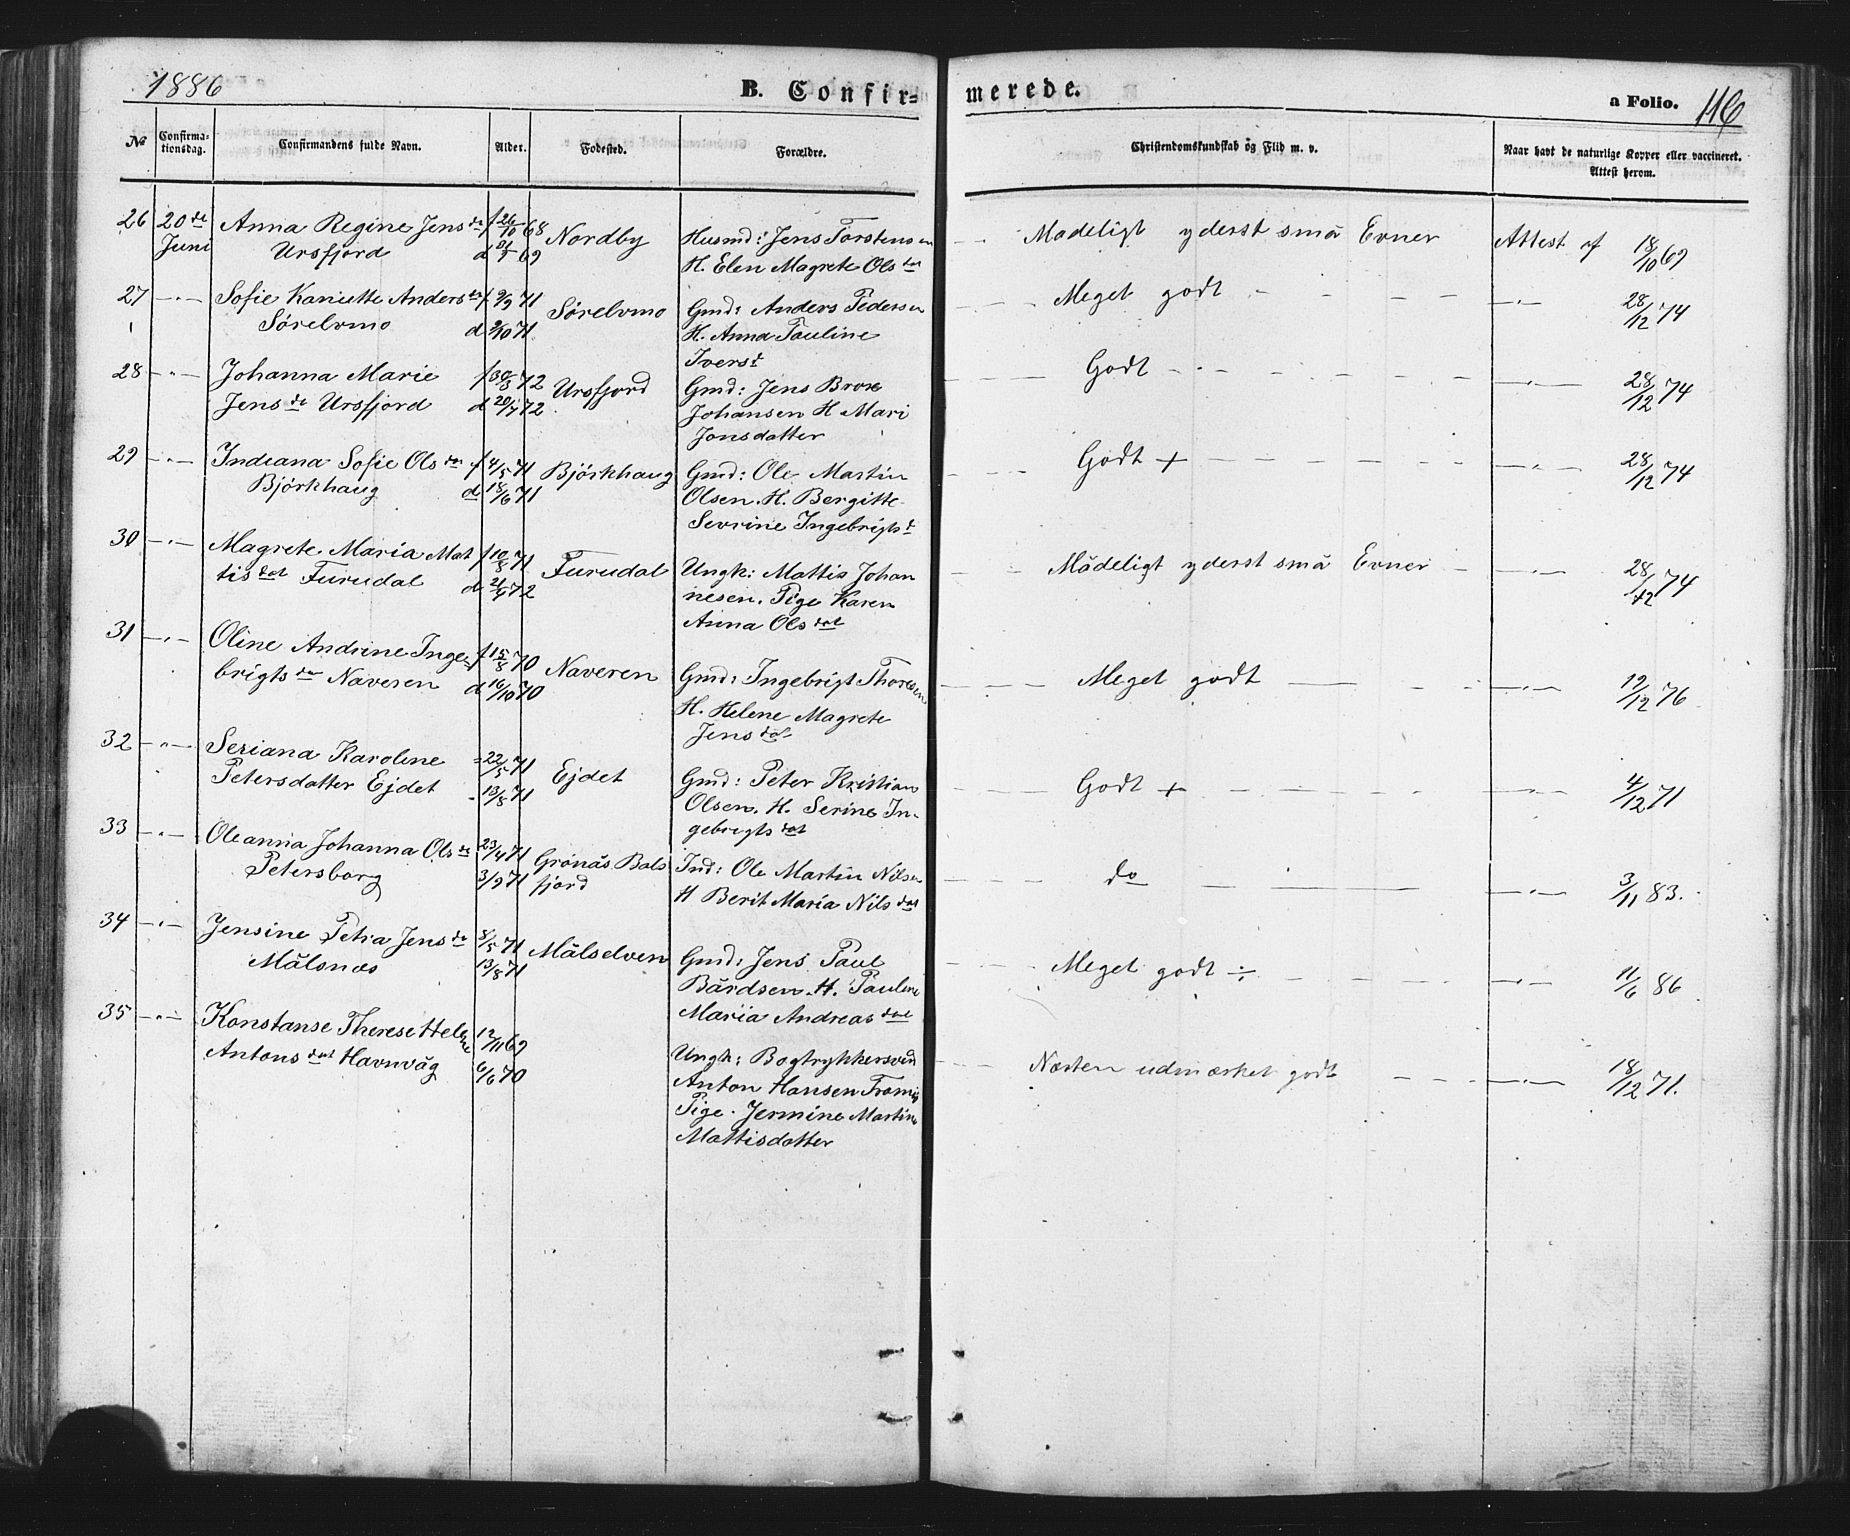 1886
B. Confirmerede.
a Folio. 116
No Confirmationsdag. Confirmandens fulde Navn. Alder. Fodested. Forældre. Christendomskundskab og Flid m. v. Naar havt de naturlige Kopper eller vaccineret. Attest herom.
26 20de Anna Regine Jensda f 26/10 68 Nordby Husmd: Jens Torstensen Madeligt yderst små Evner Attest af 18/10 69
Juni Ursfjord d 69 H. Elen Magrete Olsdat
27 —"— Sofie Kaniutte Andersda f 9/9 71 Sørelvmo Gmd: Anders Pedersen Meget godt —"— 28/12 74
Sørelvmo d 9/10 71 H. Anna Pauline
Iversd
28 —"— Johanna Marie f 30/5 72 Ursfjord Gmd: Jens Brox Godt —"— 28/12 74
Jensda Ursfjord d 20/7 72 Johansen H Mari
Jonsdatter
29 —"— Indiana Sofie Olsda f 4/5 71 Bjørkhaug Gmd: Ole Martin Godt + —"— 28/12 74
Bjørkhaug d 18/6 71 Olsen. H. Bergitte
Sevrine Ingebrigtsd
30 —"— Magrete Maria Mat f 10/8 71 Furudal Ungk: Mattis Johan Mådeligt yderst små Evner —"— 28/12 74
tisdat Furudal d 72 nesen. Pige Karen
Anna Olsdat
31 —"— Oline Andrine Inge= f 15/8 70 Naveren Gmd: Ingebrigt Thoresen Meget godt —"— 12/12 76
brigtsdat Naveren d 16/10 70 H. Helene Magrete
Jensdat
32 —"— Seriana Karoline =22/5 71 Ejdet Gmd: Peter Kristian Godt + —"— 4/12 71
Petersdatter Ejdet - 13/8 71 Olsen. H. Serine In-
gebrigtsdat
33 —"— Oleanna Johanna Olsda 23/4 71 Grønås Bals Ind: Ole Martin Nilsen do —"— 3/11 83.
Petersborg 3/9 71 fjord H Berit Maria Nilsdat
34 —"— Jensine Petra Jensda 8/5 71 Målselven Gmd: Jens Paul Meget godt ÷ —"— 11/6 86
Målsnæs 13/8 71 Bårdsen. H. Pauline
Maria Andreasdat
35 —"— Konstanse Therese Helene 12/11 69 Ungk: Bogtrykkersvend Næsten udmærket godt —"— 18/12 71.
Antonsdat Havnvåg 6/6 70 Anton Hansen
Pige. Jermine Martine
Mattisdatter